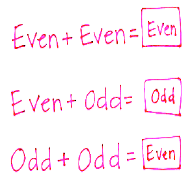 Even + Even = Even
Even + Odd = Odd
Odd + Odd = Even